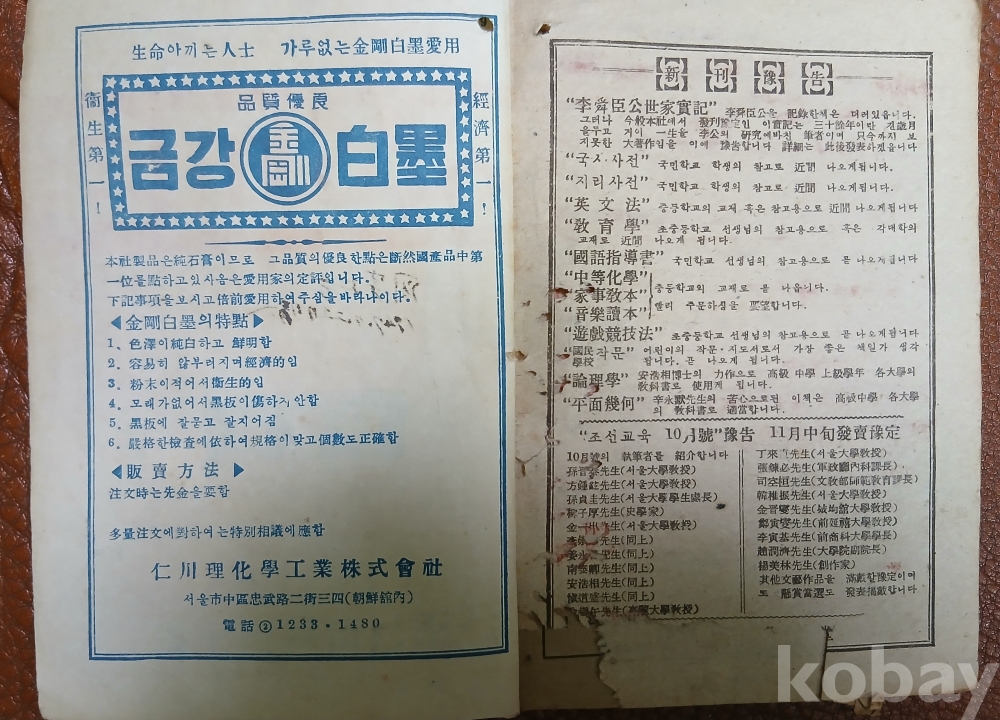 生命아끼는人士 가루없는金剛白墨愛用
衞生第一!
品質優良
금강 金剛 白墨
經濟第一!
本社製品은純石膏이므로 그品質의優良한點은斷然國產品中第
一位를點하고있사옴은愛用家의定評입니다.
下記事項을보시고倍前愛用하여주심을바라나이다.
◀金剛白墨의特點▶
1. 色澤이純白하고 鮮明함
2. 容易히 않부러지며經濟的임
3. 粉末이적어서衞生的임
4. 모래가없어서黑板이傷하지안함
5. 黑板에 잘묻고 잘지어짐
6. 嚴格한檢査에依하여規格이맞고個數도正確함
◀販賣方法▶
注文時는先金을要함
多量注文에對하여는特別相議에應함
仁川理化學工業株式會社
서울市中區忠武路二街三四(朝鮮舘內)
電話②1233·1480
【新】【刊】【豫】【告】
"李舜臣公世家實記" 李舜臣公을 記錄한책은 더러있읍니다.
그러나 今般本社에서 發刊豫定인 이實記는 三十餘年이란 긴歲月
을두고 거이 一生을 李公의 硏究에바친 筆者이며 只今까지 보
지못한 大著作임을 이에 豫告합니다 詳細는 此後發表하겠읍니다
"국사·사전" 국민학교 학생의 참고로 近間 나오게됩니다.
"지리사전" 국민학교 학생의 참고로 近間 나오게됩니다.
"英文法" 중등학교의 교재 혹은 참고용으로 近間 나오게됩니다
"敎育學" 초중등학교 선생님의 참고용으로 혹은 각대학의
교재로 近間 나오게 됩니다.
"國語指導書" 국민학교 선생님의 참고용으로 곧 나오게됩니다
"中等化學"
"家事敎本" 중등학교의 교재로 곧 나옵니다.
"音樂讀本" 빨리 주문하심을 要望합니다.
"遊戱競技法" 초중등학교 선생님의 참고용으로 곧 나오게됩니다
"國民學校 작문" 어린이의 작문·지도서로서 가장 좋은 책일가 생각
됩니다. 곧 나오게 됩니다.
"論理學" 安浩相博士의 力作으로 高級 中學 上級學年 各大學의
敎科書로 使用게 됩니다.
"平面幾何" 辛永默先生의 苦心으로된 이책은 高級中學 各大學
의 敎科書로 適當합니다.
"조선교육 10月號"豫告 11月中旬發賣豫定
10月號의 執筆者를 紹介합니다
孫晋泰先生(서울大學敎授)
方鍾鉉先生(서울大學敎授)
孫貞圭先生(서울大學學生處長)
先生(史學家)
先生(서울大學敎授)
先生(同上)
先生(同上)
先生(同上)
安浩相先生(同上)
愼道晟先生(同上)
先生(高麗大學敎授)
丁來 先生(서울大學敎授)
張鍊必先生(軍政廳內科課長)
司空桓先生(文敎部師範敎育課長)
韓稚振先生(서울大學敎授)
金晋燮先生(成均館大學敎授)
鄭寅燮先生(前延禧大學敎授)
李寅基先生(前商科大學學長)
趙潤濟先生(大學院副院長)
楊美林先生(創作家)
其他文藝作品을 滿載할豫定이며
또 懸賞當選도 發表揭載합니다
kobay